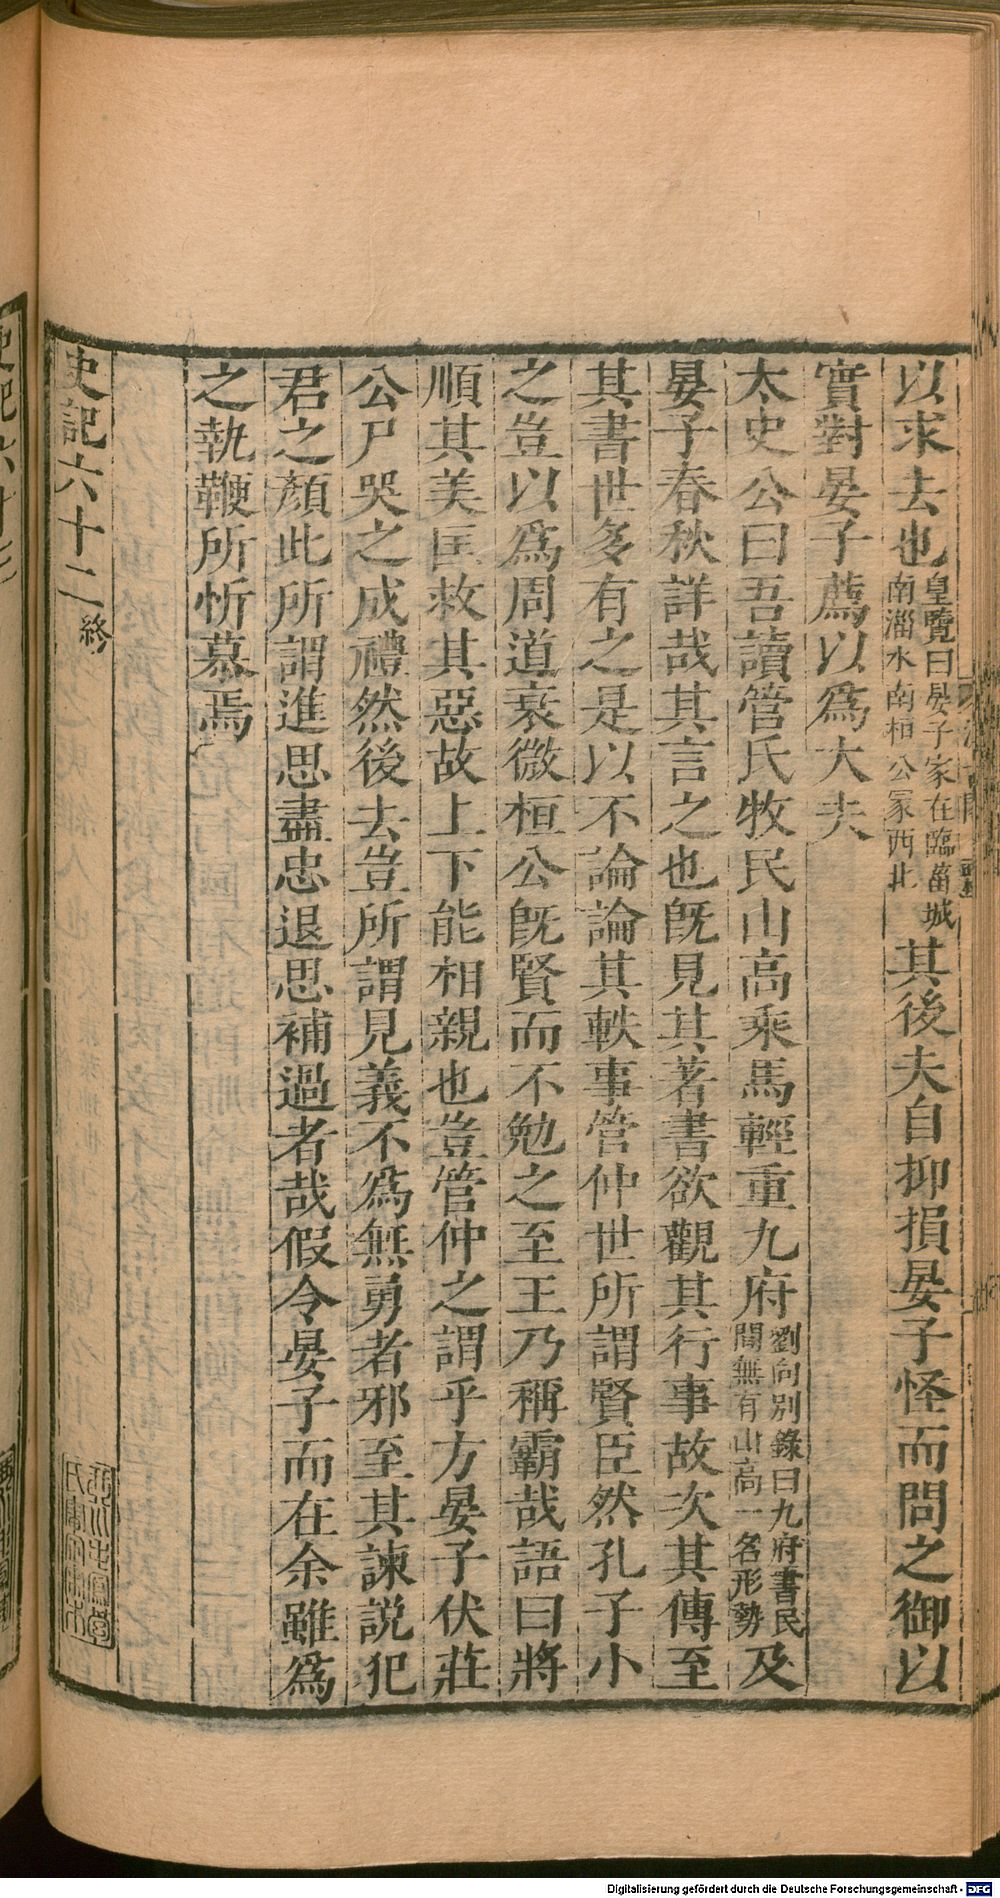 以求去也皇覽曰晏子冢在臨菑城南淄水南桓公冢西北其後夫自抑損晏子怪而問之御以
實對晏子薦以爲大夫
太史公曰吾讀管氏牧民山高乘馬輕重九府劉向別錄曰九府書民間無有山高一名形勢及
晏子春秋詳哉其言之也既見其著書欲觀其行事故次其傳至
其書世多有之是以不論論其軼事管仲世所謂賢臣然孔子小
之豈以爲周道衰微桓公既賢而不勉之至王乃稱霸哉語曰將
順其美匡救其惡故上下能相親也豈管仲之謂乎方晏子伏莊
公尸哭之成禮然後去豈所謂見義不爲無勇者邪至其諫説犯
君之顏此所謂進思盡忠退思補過者哉假令晏子而在余雖爲
之執鞭所忻慕焉
史記六十二終
Digitalisierung gefördert durch die Deutsche Forschungsgemeinschaft - DFG